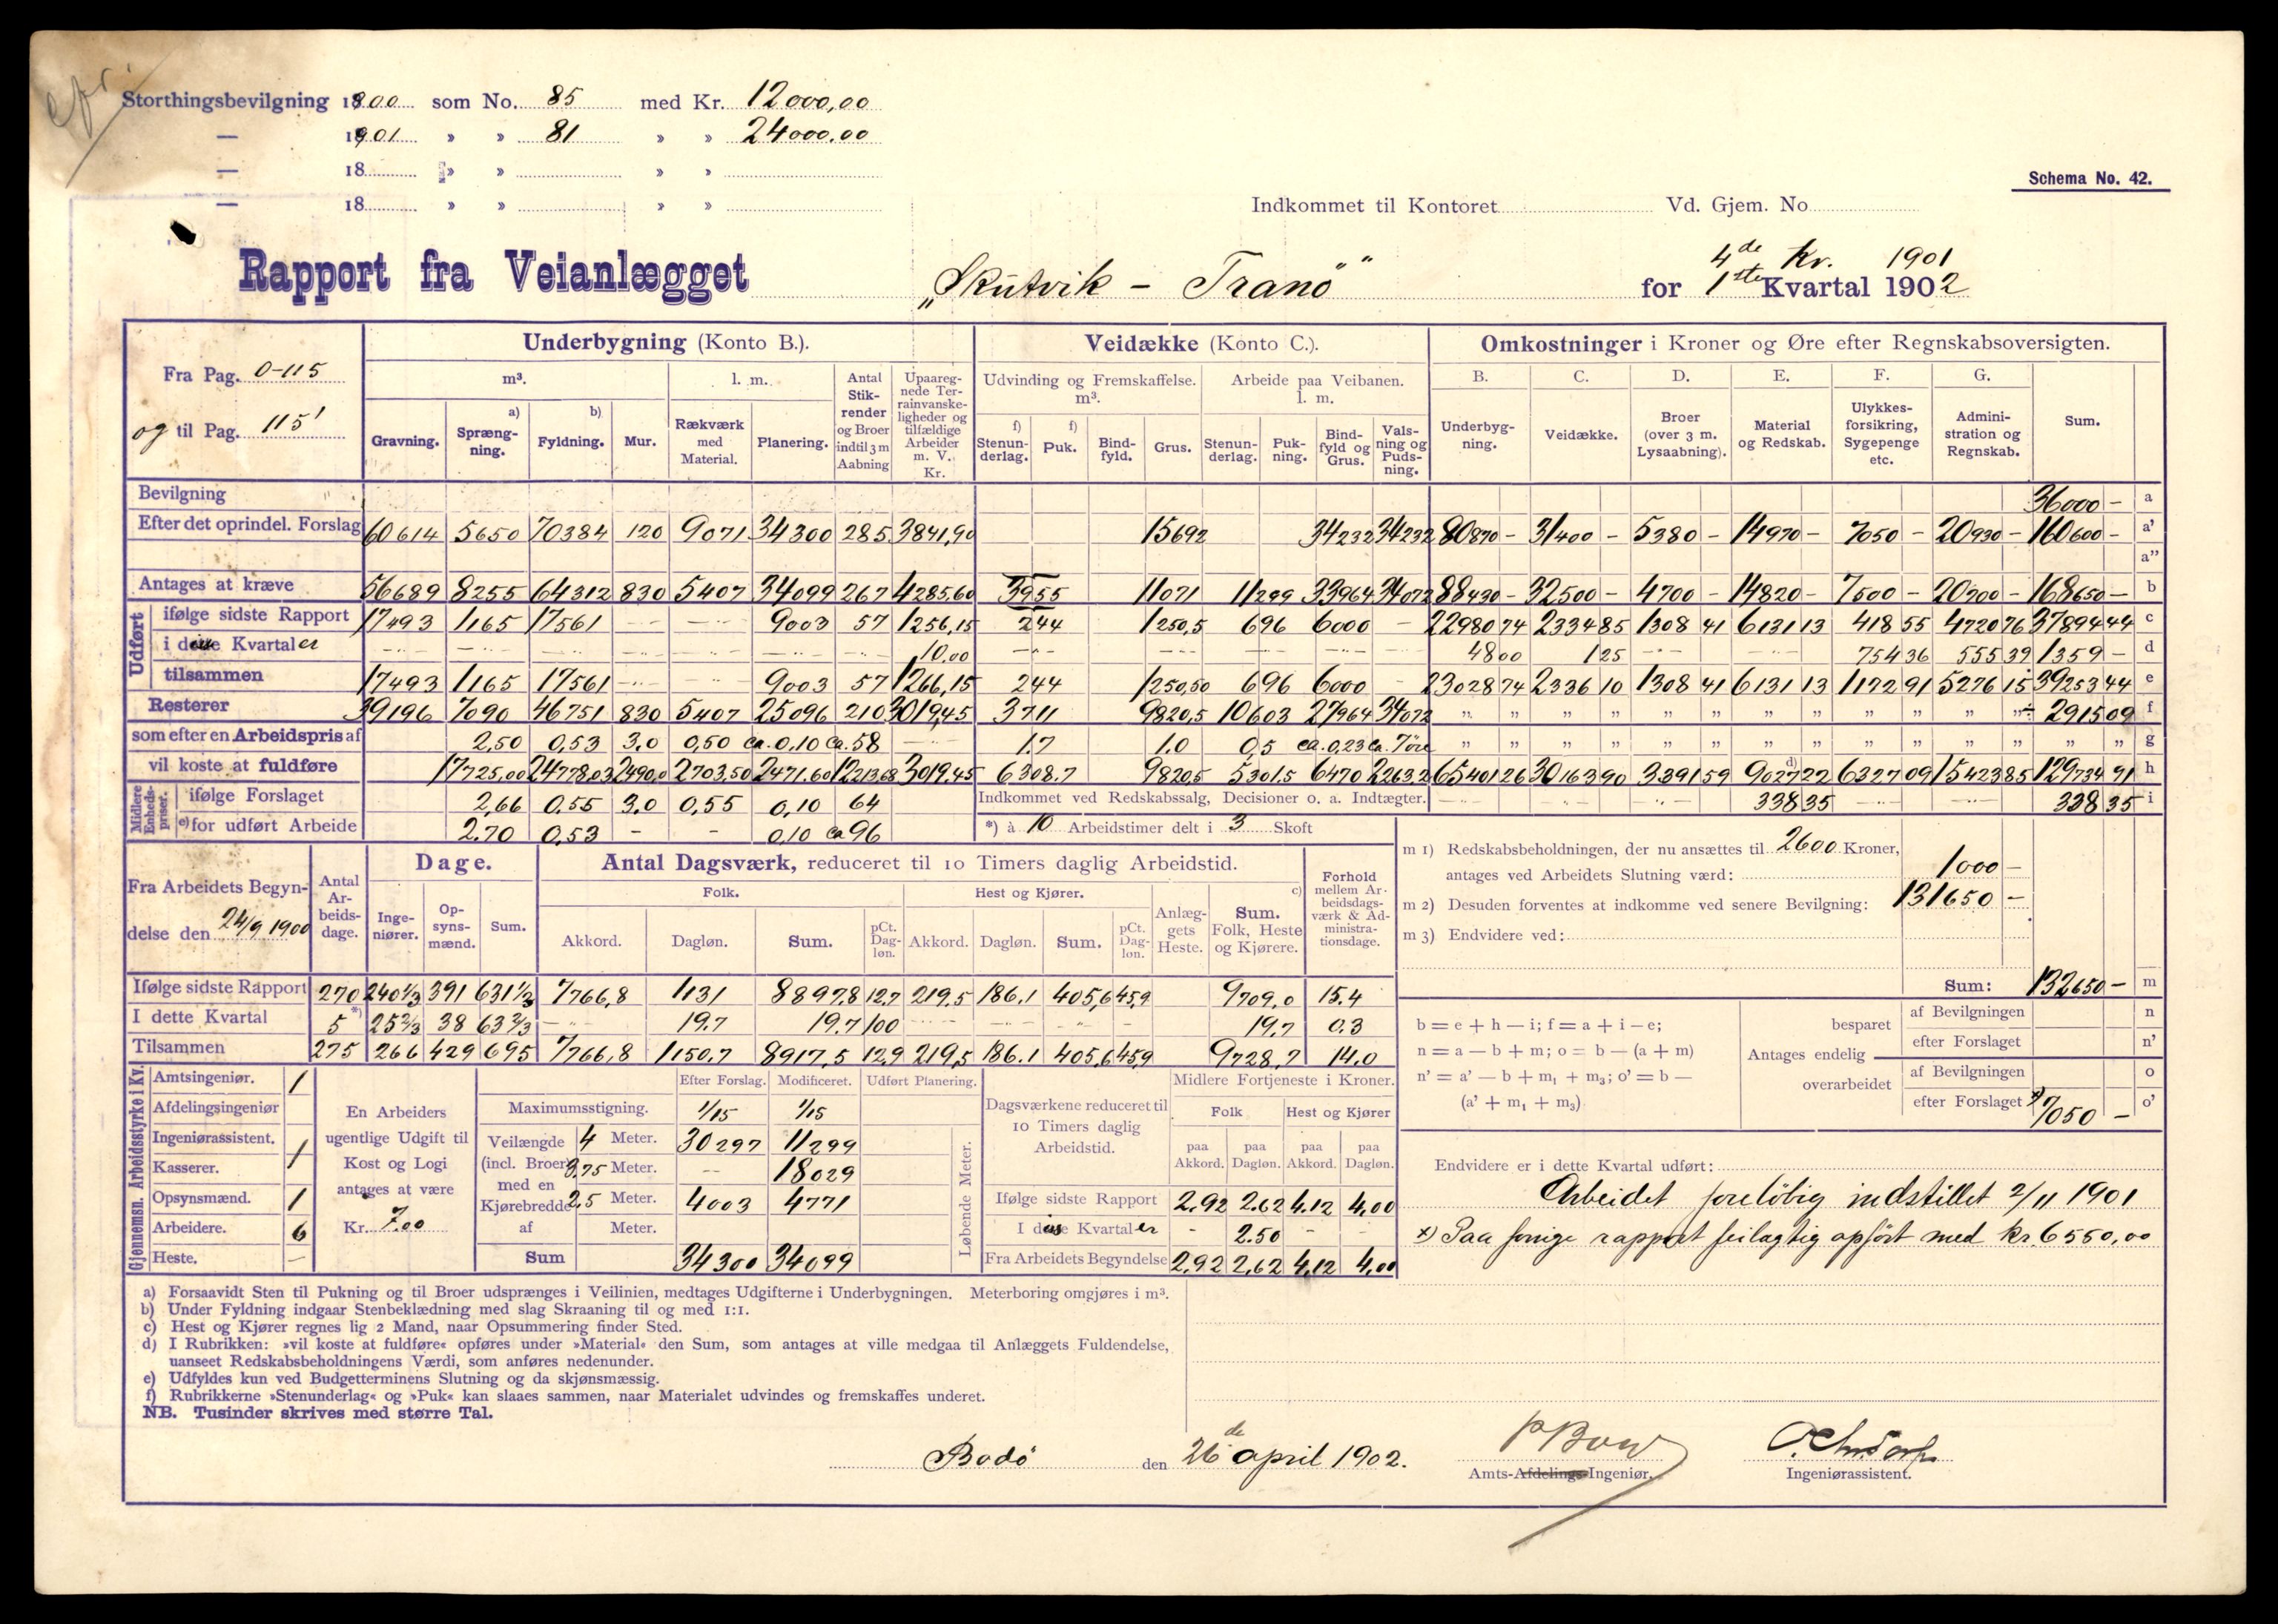 Storthingsbevilgning 1900 som No. 85 med Kr. 12000,00
— 1901 » » 81 » » 24000.00
— 18 » » » »
— 18 » » » »
Schema No. 42.
Indkommet til Kontoret Vd. Gjem. No
4de Kr. 1901
Rapport fra Veianlægget „Skutvik - Tranö" for 1ste Kvartal 1902
Fra Pag. 0-115
og til Pag. 115'
Underbygning (Konto B.). Veidække (Konto C.). Omkostninger i Kroner og Øre efter Regnskabsoversigten.
m³. l. m. Antal Stikrender og Broer indtil 3 m Aabning Upaaregnede Terrainvanskeligheder og tilfældige Arbeider m. V. Kr.
Udvinding og Fremskaffelse. m³. Arbeide paa Veibanen. l. m.
B. C. D. E. F. G.
Gravning. a) Sprængning. b) Fyldning. Mur. Rækværk med Material. Planering.
f) Stenunderlag. f) Puk. Bindfyld. Grus. Stenunderlag. Pukning. Bindfyld og Grus. Valsning og Pudsning.
Underbygning. Veidække. Broer (over 3 m. Lysaabning). Material og Redskab. Ulykkesforsikring, Sygepenge etc. Administration og Regnskab. Sum.
Bevilgning 36000 - a
Efter det oprindel. Forslag 60614 5650 70384 120 9071 34300 285 3841,90 15692 34232 34232 80870 - 31400 - 5380 - 14970 - 7050 - 20930 - 160600 - a'
a"
Antages at kræve 56689 8255 64312 830 5407 34099 267 4285,60 3955 11071 11299 33964 34072 88430 - 32500 - 4700 - 14820 - 7500 - 20700 - 168650 - b
Udført
ifølge sidste Rapport 17493 1165 17561 9003 57 1256,15 244 1250,5 696 6000 - 22980 74 2334 85 1308 41 6131 13 418 55 4720 76 37894 44 c
i disse Kvartaler 10.00 48 00 1 25 754 36 555 39 1359 - d
tilsammen 17493 1165 17561 9003 57 1266,15 244 1250,50 696 6000 - 23028 74 2336 10 1308 41 6131 13 1172 91 5276 15 39253 44 e
Resterer 39196 7090 46751 830 5407 25096 210 3019,45 3711 9820,5 10603 27964 34072 " " " " " " " " " " " ÷ 2915 09 f
som efter en Arbeidspris af 2,50 0,53 3.0 0,50 ca. 0,10 ca. 58 1.7 1.0 0,5 ca. 0,23 ca. 7 öre " " " " " " " " " " " " " " g
vil koste at fuldføre 17725,00 24778,03 2490,0 2703,50 2471.60 12213,68 3019.45 6308.7 9820,5 5301.5 6470 2263,2 65401 26 30163 90 3391 59 d) 9027 22 6327 09 15423 85 129734 91 h
Midlere Enhedspriser.
ifølge Forslaget 2,66 0.55 3.0 0,55 0,10 64 Indkommet ved Redskabssalg, Decisioner o. a. Indtægter. 338 35 338 35 i
e) for udført Arbeide 2.70 0,53 - - 0,10 ca 96 *) à 10 Arbeidstimer delt i 3 Skoft
Fra Arbeidets Begyndelse den 24/9 1900
Antal Arbeidsdage. Dage. Antal Dagsværk, reduceret til 10 Timers daglig Arbeidstid. Forhold mellem Arbeidsdagsværk & Administrationsdage.
Folk. Hest og Kjører.
Ingeniører. Opsynsmænd. Sum. Akkord. Dagløn. Sum. pCt. Dagløn. Akkord. Dagløn. Sum. pCt. Dagløn. Anlæggets Heste. c) Sum. Folk, Heste og Kjørere.
Ifølge sidste Rapport 270 240 1/3 391 631 1/3 7766,8 1131 8897.8 12,7 219,5 186.1 405,6 45,9 9709,0 15.4
I dette Kvartal 5 *) 25 2/3 38 63 2/3 19.7 19.7 100 19,7 0.3
Tilsammen 275 266 429 695 7766,8 1150.7 8917,5 12,9 219,5 186.1 405,6 45,9 9728,7 14.0
m 1) Redskabsbeholdningen, der nu ansættes til 2600 Kroner,
antages ved Arbeidets Slutning værd: 1000 -
m 2) Desuden forventes at indkomme ved senere Bevilgning: 131650 -
m 3) Endvidere ved:
Sum: 132650 - m
b = e + h — i; f = a + i — e;
n = a — b + m; o = b — (a + m)
n' = a' — b + m1 + m3; o' = b —
(a' + m1 + m3)
Antages endelig
besparet af Bevilgningen n
efter Forslaget n'
overarbeidet af Bevilgningen o
efter Forslaget x) 7050 - o'
Gjennemsn. Arbeidsstyrke i Kv.
Amtsingeniør. 1
Afdelingsingeniør
Ingeniørassistent. 1
Kasserer.
Opsynsmænd. 1
Arbeidere. 6
Heste. —
En Arbeiders ugentlige Udgift til Kost og Logi antages at være
Kr. 7.00
Efter Forslag. Modificeret. Udført Planering.
Maximumsstigning. 1/15 1/15
Veilængde (incl. Broer) med en Kjørebredde af
4 Meter. 30297 11299
3,75 Meter. -- 18029
2,5 Meter. 4003 4771
Meter.
Sum 34300 34099
Løbende Meter.
Dagsværkene reduceret til 10 Timers daglig Arbeidstid.
Midlere Fortjeneste i Kroner.
Folk Hest og Kjører
paa Akkord. paa Dagløn. paa Akkord. paa Dagløn.
Ifølge sidste Rapport 2,92 2.62 4.12 4,00
I disse Kvartaler - 2.50 - -
Fra Arbeidets Begyndelse 2,92 2,62 4,12 4,00
Endvidere er i dette Kvartal udført:
Arbeidet foreløbig indstillet 2/11 1901
x) Paa forrige rapport feilagtig opført med kr. 6550,00
a) Forsaavidt Sten til Pukning og til Broer udsprænges i Veilinien, medtages Udgifterne i Underbygningen. Meterboring omgjøres i m³.
b) Under Fyldning indgaar Stenbeklædning med slag Skraaning til og med 1:1.
c) Hest og Kjører regnes lig 2 Mand, naar Opsummering finder Sted.
d) I Rubrikken: »vil koste at fuldføre« opføres under »Material« den Sum, som antages at ville medgaa til Anlæggets Fuldendelse,
uanseet Redskabsbeholdningens Værdi, som anføres nedenunder.
e) Udfyldes kun ved Budgetterminens Slutning og da skjønsmæssig.
f) Rubrikkerne »Stenunderlag« og »Puk« kan slaaes sammen, naar Materialet udvindes og fremskaffes underet.
NB. Tusinder skrives med større Tal.
Bodö den 26de april 1902.
Amts-Afdelings-Ingeniør. Ingeniørassistent.